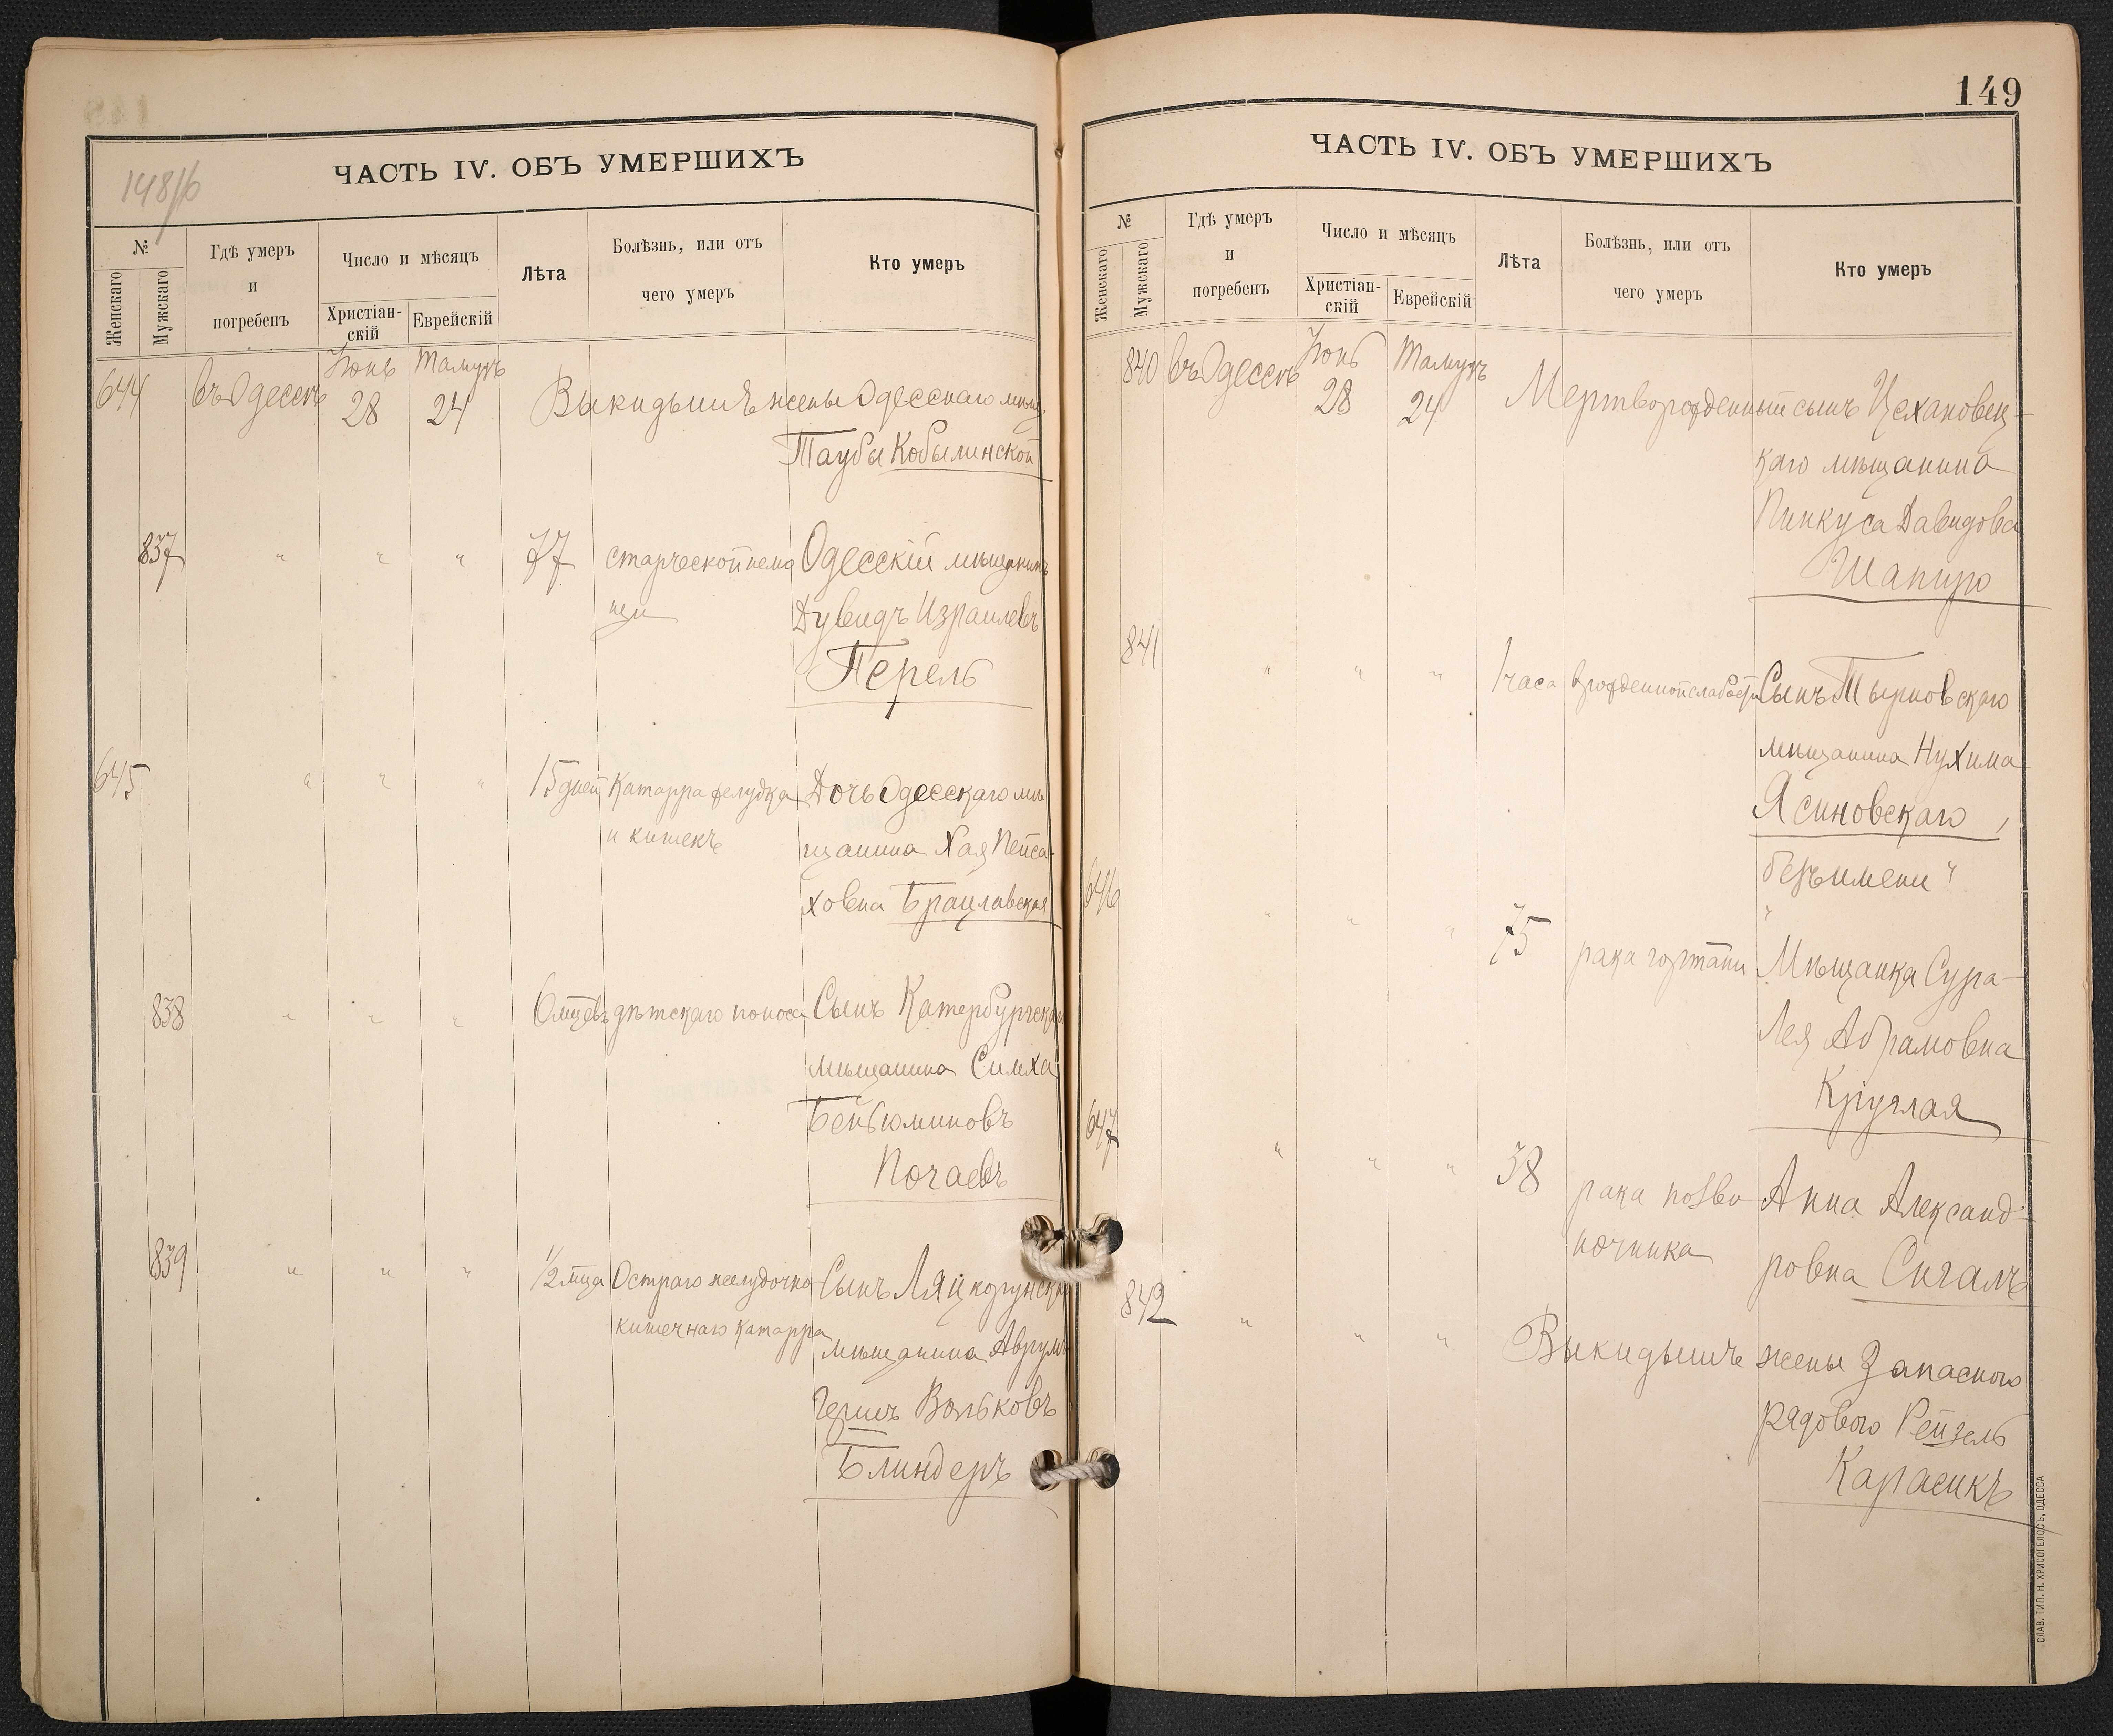 148/б
ЧАСТЬ IV. ОБЪ УМЕРШИХЪ
№
Женскаго
Мужскаго
Гдѣ умеръ
и
погребенъ
Число и мѣсяцъ
Христіан-
скій
Еврейскій
Лѣта
Болѣзнь, или отъ
чего умеръ
Кто умеръ
644 въ Одессѣ Іюнь 28 Тамузъ 24 Выкидышъ жены Одесскаго мѣщ.
Таубы Кобылинской
837 " " " 77 старческой немо Одесскій мѣщанинъ
щи Дувидъ Израилевъ
Перель
645 " " " 15 дней Катарра желудка Дочь Одесскаго мѣ
и кишекъ щанина Хая Пейса-
ховна Брацлавская
838 " " " 6 мцевъ дѣтскаго поноса Сынъ Катербургскаго
мѣщанина Симха
Беньюминовъ
Почаевъ
839 " " " 1/2 мца Остраго желудочно Сынъ Ляцкорунск
кишечнаго катарра мѣщанина Аврумъ
Гершъ Вольковъ
Блиндеръ
149
ЧАСТЬ IV. ОБЪ УМЕРШИХЪ
№
Женскаго
Мужскаго
Гдѣ умеръ
и
погребенъ
Число и мѣсяцъ
Христіан-
скій
Еврейскій
Лѣта
Болѣзнь, или отъ
чего умеръ
Кто умеръ
840 въ Одессѣ Іюнь 28 Тамузъ 24 Мертворожденный сынъ Цехановец-
каго мѣщанина
Пинкуса Давидова
Шапиро
841 " " " 1 часа врожденной слабости Сынъ Тырновскаго
мѣщанина Нухима
Ясиновскаго,
"безъ имени"
646 " " " 75 рака гортани Мѣщанка Сура-
Лея Абрамовна
Круглая
647 " " " 38 рака позво Анна Александ-
ночника ровна Сигалъ
842 " " " Выкидышъ жены Запасного
рядового Рейзель
Карасикъ
СЛАВ. ТИП. Н. ХРИСОГЕЛОСЪ, ОДЕССА